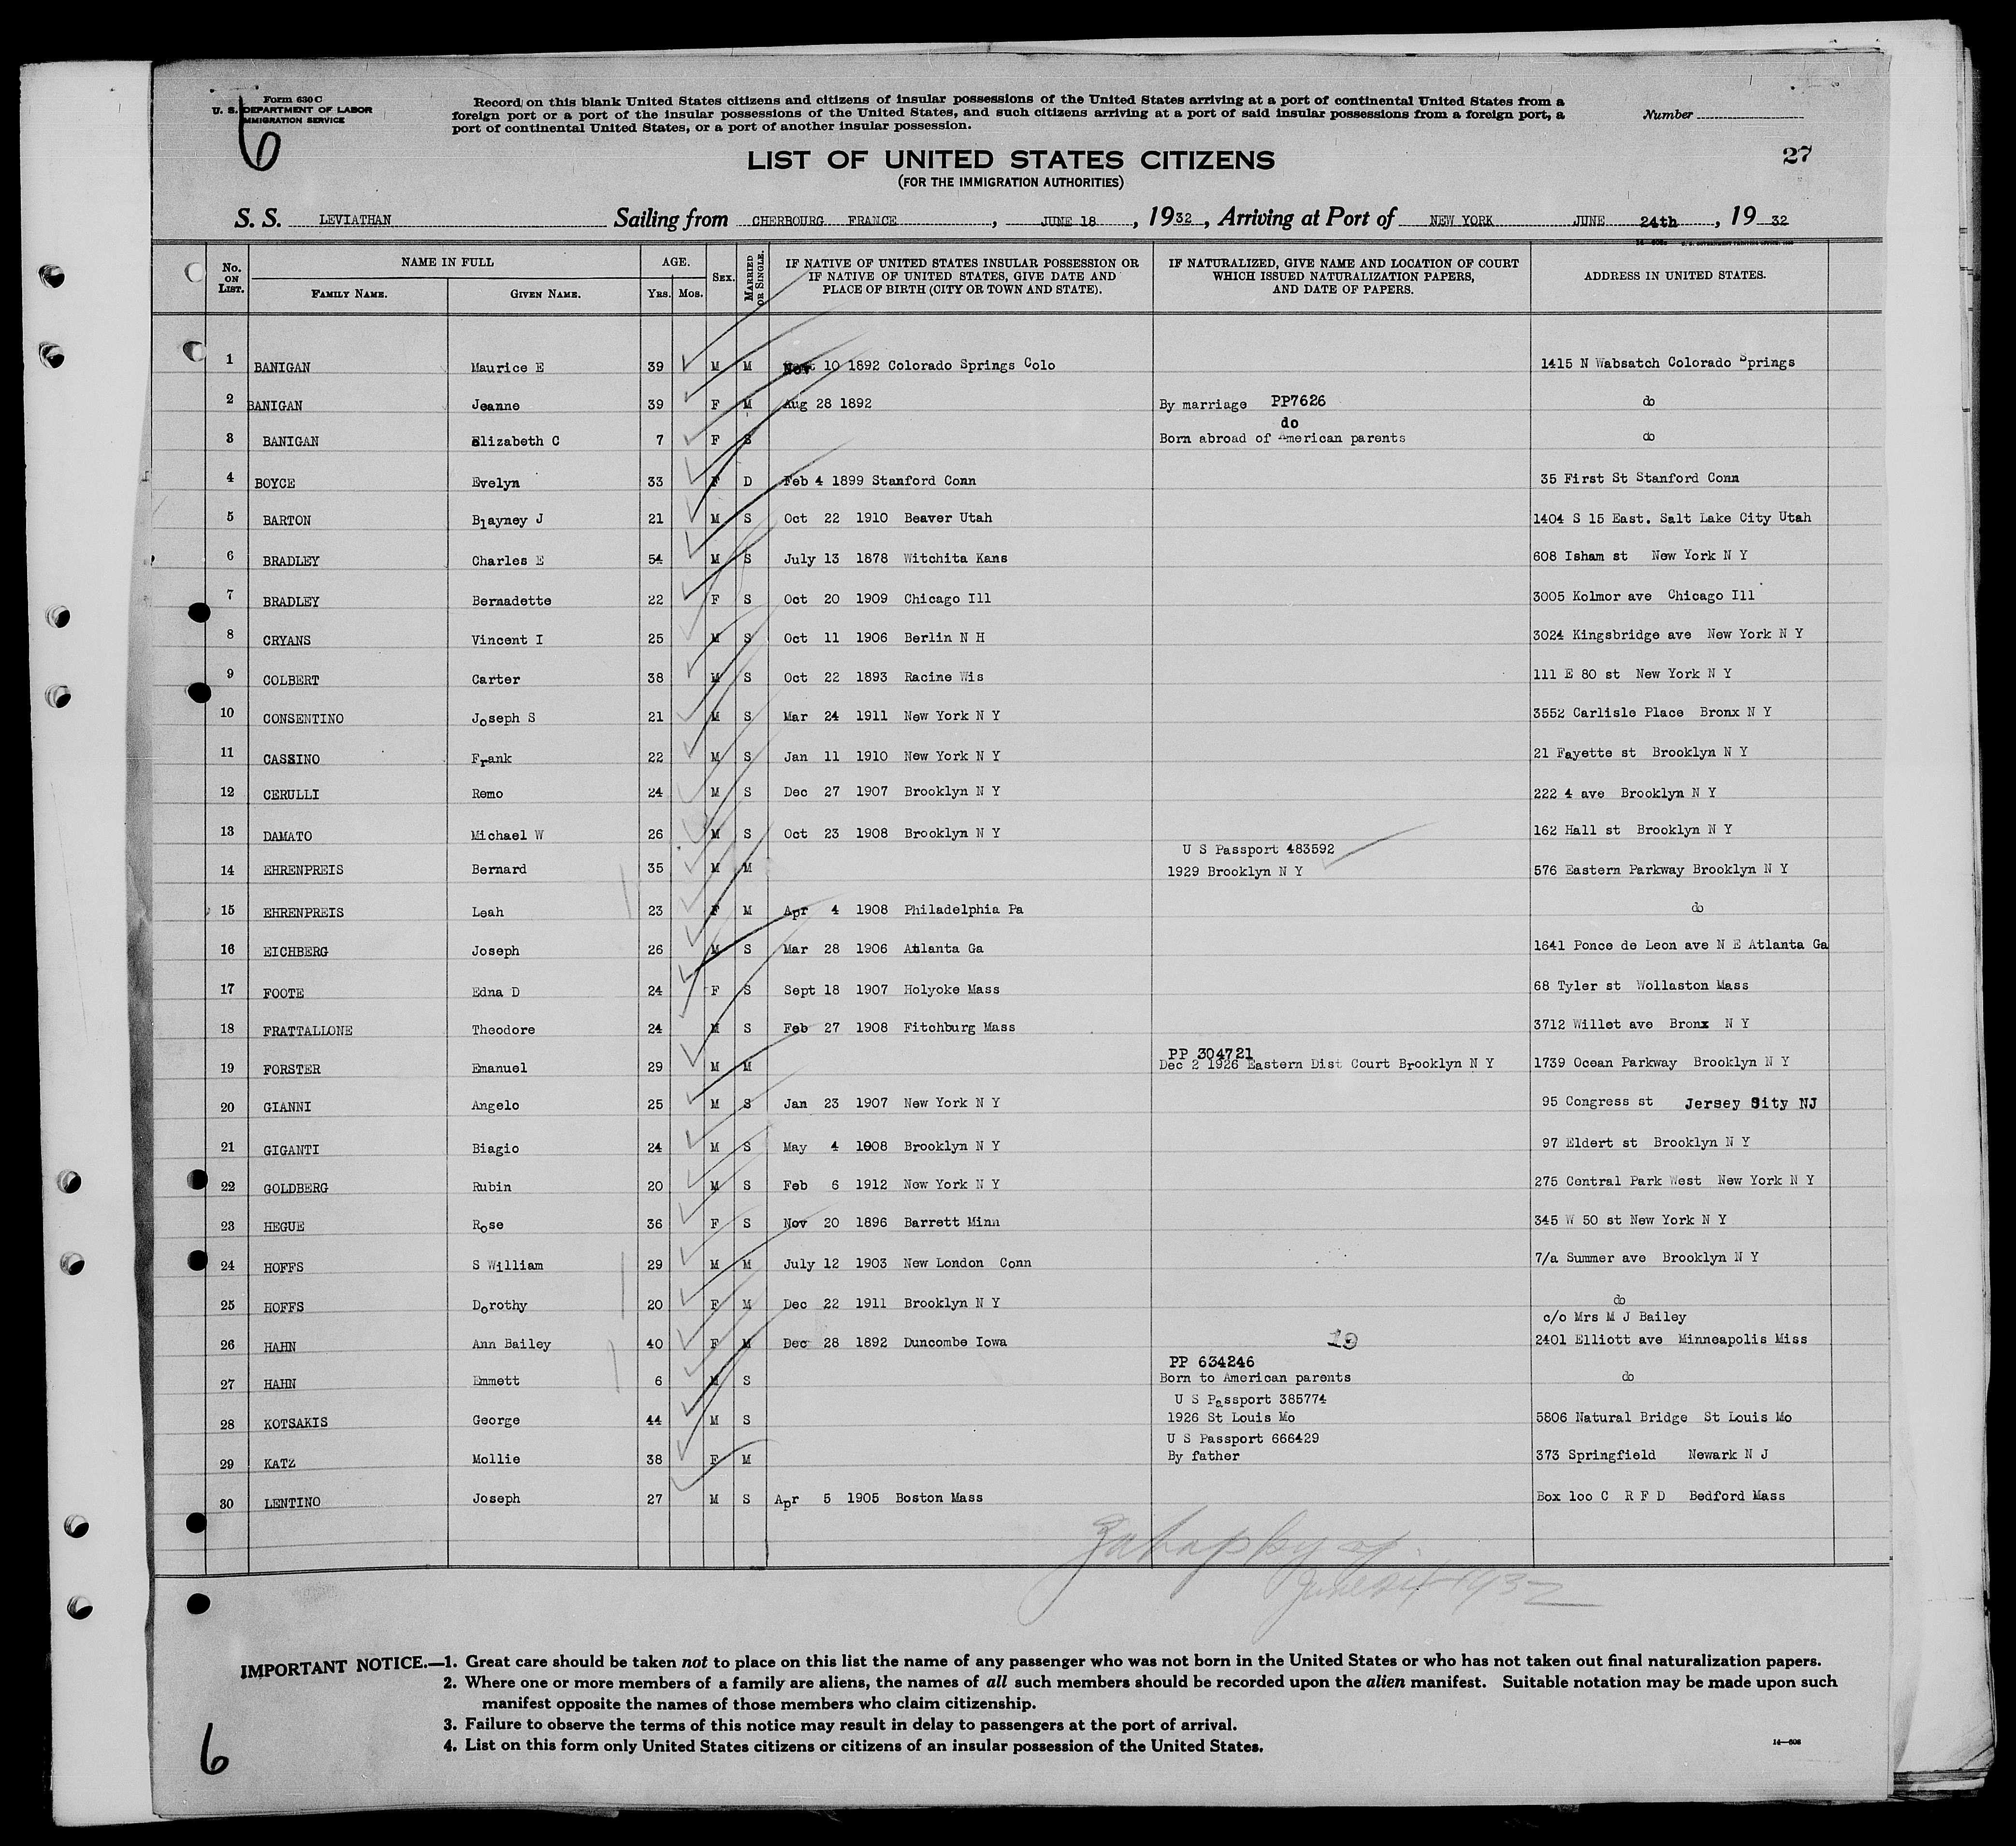 Form 630 C
U. S. DEPARTMENT OF LABOR
IMMIGRATION SERVICE
6
Record on this blank United States citizens and citizens of insular possessions of the United States arriving at a port of continental United States from a
foreign port or a port of the insular possessions of the United States, and such citizens arriving at a port of said insular possessions from a foreign port, a
port of continental United States, or a port of another insular possession.
Number
LIST OF UNITED STATES CITIZENS
(FOR THE IMMIGRATION AUTHORITIES)
27
S. S. LEVIATHAN Sailing from CHERBOURG FRANCE , JUNE 18 , 1932 , Arriving at Port of NEW YORK JUNE 24th , 19 32
No. ON LIST. NAME IN FULL FAMILY NAME. GIVEN NAME. AGE. Yrs. Mos. SEX. MARRIED OR SINGLE. IF NATIVE OF UNITED STATES INSULAR POSSESSION OR IF NATIVE OF UNITED STATES, GIVE DATE AND PLACE OF BIRTH (CITY OR TOWN AND STATE). IF NATURALIZED, GIVE NAME AND LOCATION OF COURT WHICH ISSUED NATURALIZATION PAPERS, AND DATE OF PAPERS. ADDRESS IN UNITED STATES.
1 BANIGAN Maurice E 39 M M Nov 10 1892 Colorado Springs Colo 1415 N Wabsatch Colorado Springs
2 BANIGAN Jeanne 39 F M Aug 28 1892 By marriage PP7626 do
do
3 BANIGAN Elizabeth C 7 F S Born abroad of American parents do
4 BOYCE Evelyn 33 F D Feb 4 1899 Stanford Conn 35 First St Stanford Conn
5 BARTON Blayney J 21 M S Oct 22 1910 Beaver Utah 1404 S 15 East. Salt Lake City Utah
6 BRADLEY Charles E 54 M S July 13 1878 Witchita Kans 608 Isham st New York N Y
7 BRADLEY Bernadette 22 F S Oct 20 1909 Chicago Ill 3005 Kolmor ave Chicago Ill
8 CRYANS Vincent I 25 M S Oct 11 1906 Berlin N H 3024 Kingsbridge ave New York N Y
9 COLBERT Carter 38 M S Oct 22 1893 Racine Wis 111 E 80 st New York N Y
10 CONSENTINO Joseph S 21 M S Mar 24 1911 New York N Y 3552 Carlisle Place Bronx N Y
11 CASSINO Frank 22 M S Jan 11 1910 New York N Y 21 Fayette st Brooklyn N Y
12 CERULLI Remo 24 M S Dec 27 1907 Brooklyn N Y 222 4 ave Brooklyn N Y
13 DAMATO Michael W 26 M S Oct 23 1908 Brooklyn N Y 162 Hall st Brooklyn N Y
U S Passport 483592
14 EHRENPREIS Bernard 35 M M 1929 Brooklyn N Y 576 Eastern Parkway Brooklyn N Y
15 EHRENPREIS Leah 23 F M Apr 4 1908 Philadelphia Pa do
16 EICHBERG Joseph 26 M S Mar 28 1906 Atlanta Ga 1641 Ponce de Leon ave N E Atlanta Ga
17 FOOTE Edna D 24 F S Sept 18 1907 Holyoke Mass 68 Tyler st Wollaston Mass
18 FRATTALLONE Theodore 24 M S Feb 27 1908 Fitchburg Mass 3712 Willet ave Bronx N Y
PP 304721
19 FORSTER Emanuel 29 M M Dec 2 1926 Eastern Dist Court Brooklyn N Y 1739 Ocean Parkway Brooklyn N Y
20 GIANNI Angelo 25 M S Jan 23 1907 New York N Y 95 Congress st Jersey Sity NJ
21 GIGANTI Biagio 24 M S May 4 1908 Brooklyn N Y 97 Eldert st Brooklyn N Y
22 GOLDBERG Rubin 20 M S Feb 6 1912 New York N Y 275 Central Park West New York N Y
23 HEGUE Rose 36 F S Nov 20 1896 Barrett Minn 345 W 50 st New York N Y
24 HOFFS S William 29 M M July 12 1903 New London Conn 7/a Summer ave Brooklyn N Y
25 HOFFS Dorothy 20 F M Dec 22 1911 Brooklyn N Y do
c/o Mrs M J Bailey
26 HAHN Ann Bailey 40 F M Dec 28 1892 Duncombe Iowa 19 2401 Elliott ave Minneapolis Miss
PP 634246
27 HAHN Emmett 6 M S Born to American parents do
U S Passport 385774
28 KOTSAKIS George 44 M S 1926 St Louis Mo 5806 Natural Bridge St Louis Mo
U S Passport 666429
29 KATZ Mollie 38 F M By father 373 Springfield Newark N J
30 LENTINO Joseph 27 M S Apr 5 1905 Boston Mass Box 100 C R F D Bedford Mass
June 24 1932
IMPORTANT NOTICE.—1. Great care should be taken not to place on this list the name of any passenger who was not born in the United States or who has not taken out final naturalization papers.
2. Where one or more members of a family are aliens, the names of all such members should be recorded upon the alien manifest. Suitable notation may be made upon such
manifest opposite the names of those members who claim citizenship.
3. Failure to observe the terms of this notice may result in delay to passengers at the port of arrival.
4. List on this form only United States citizens or citizens of an insular possession of the United States.
14—608
6